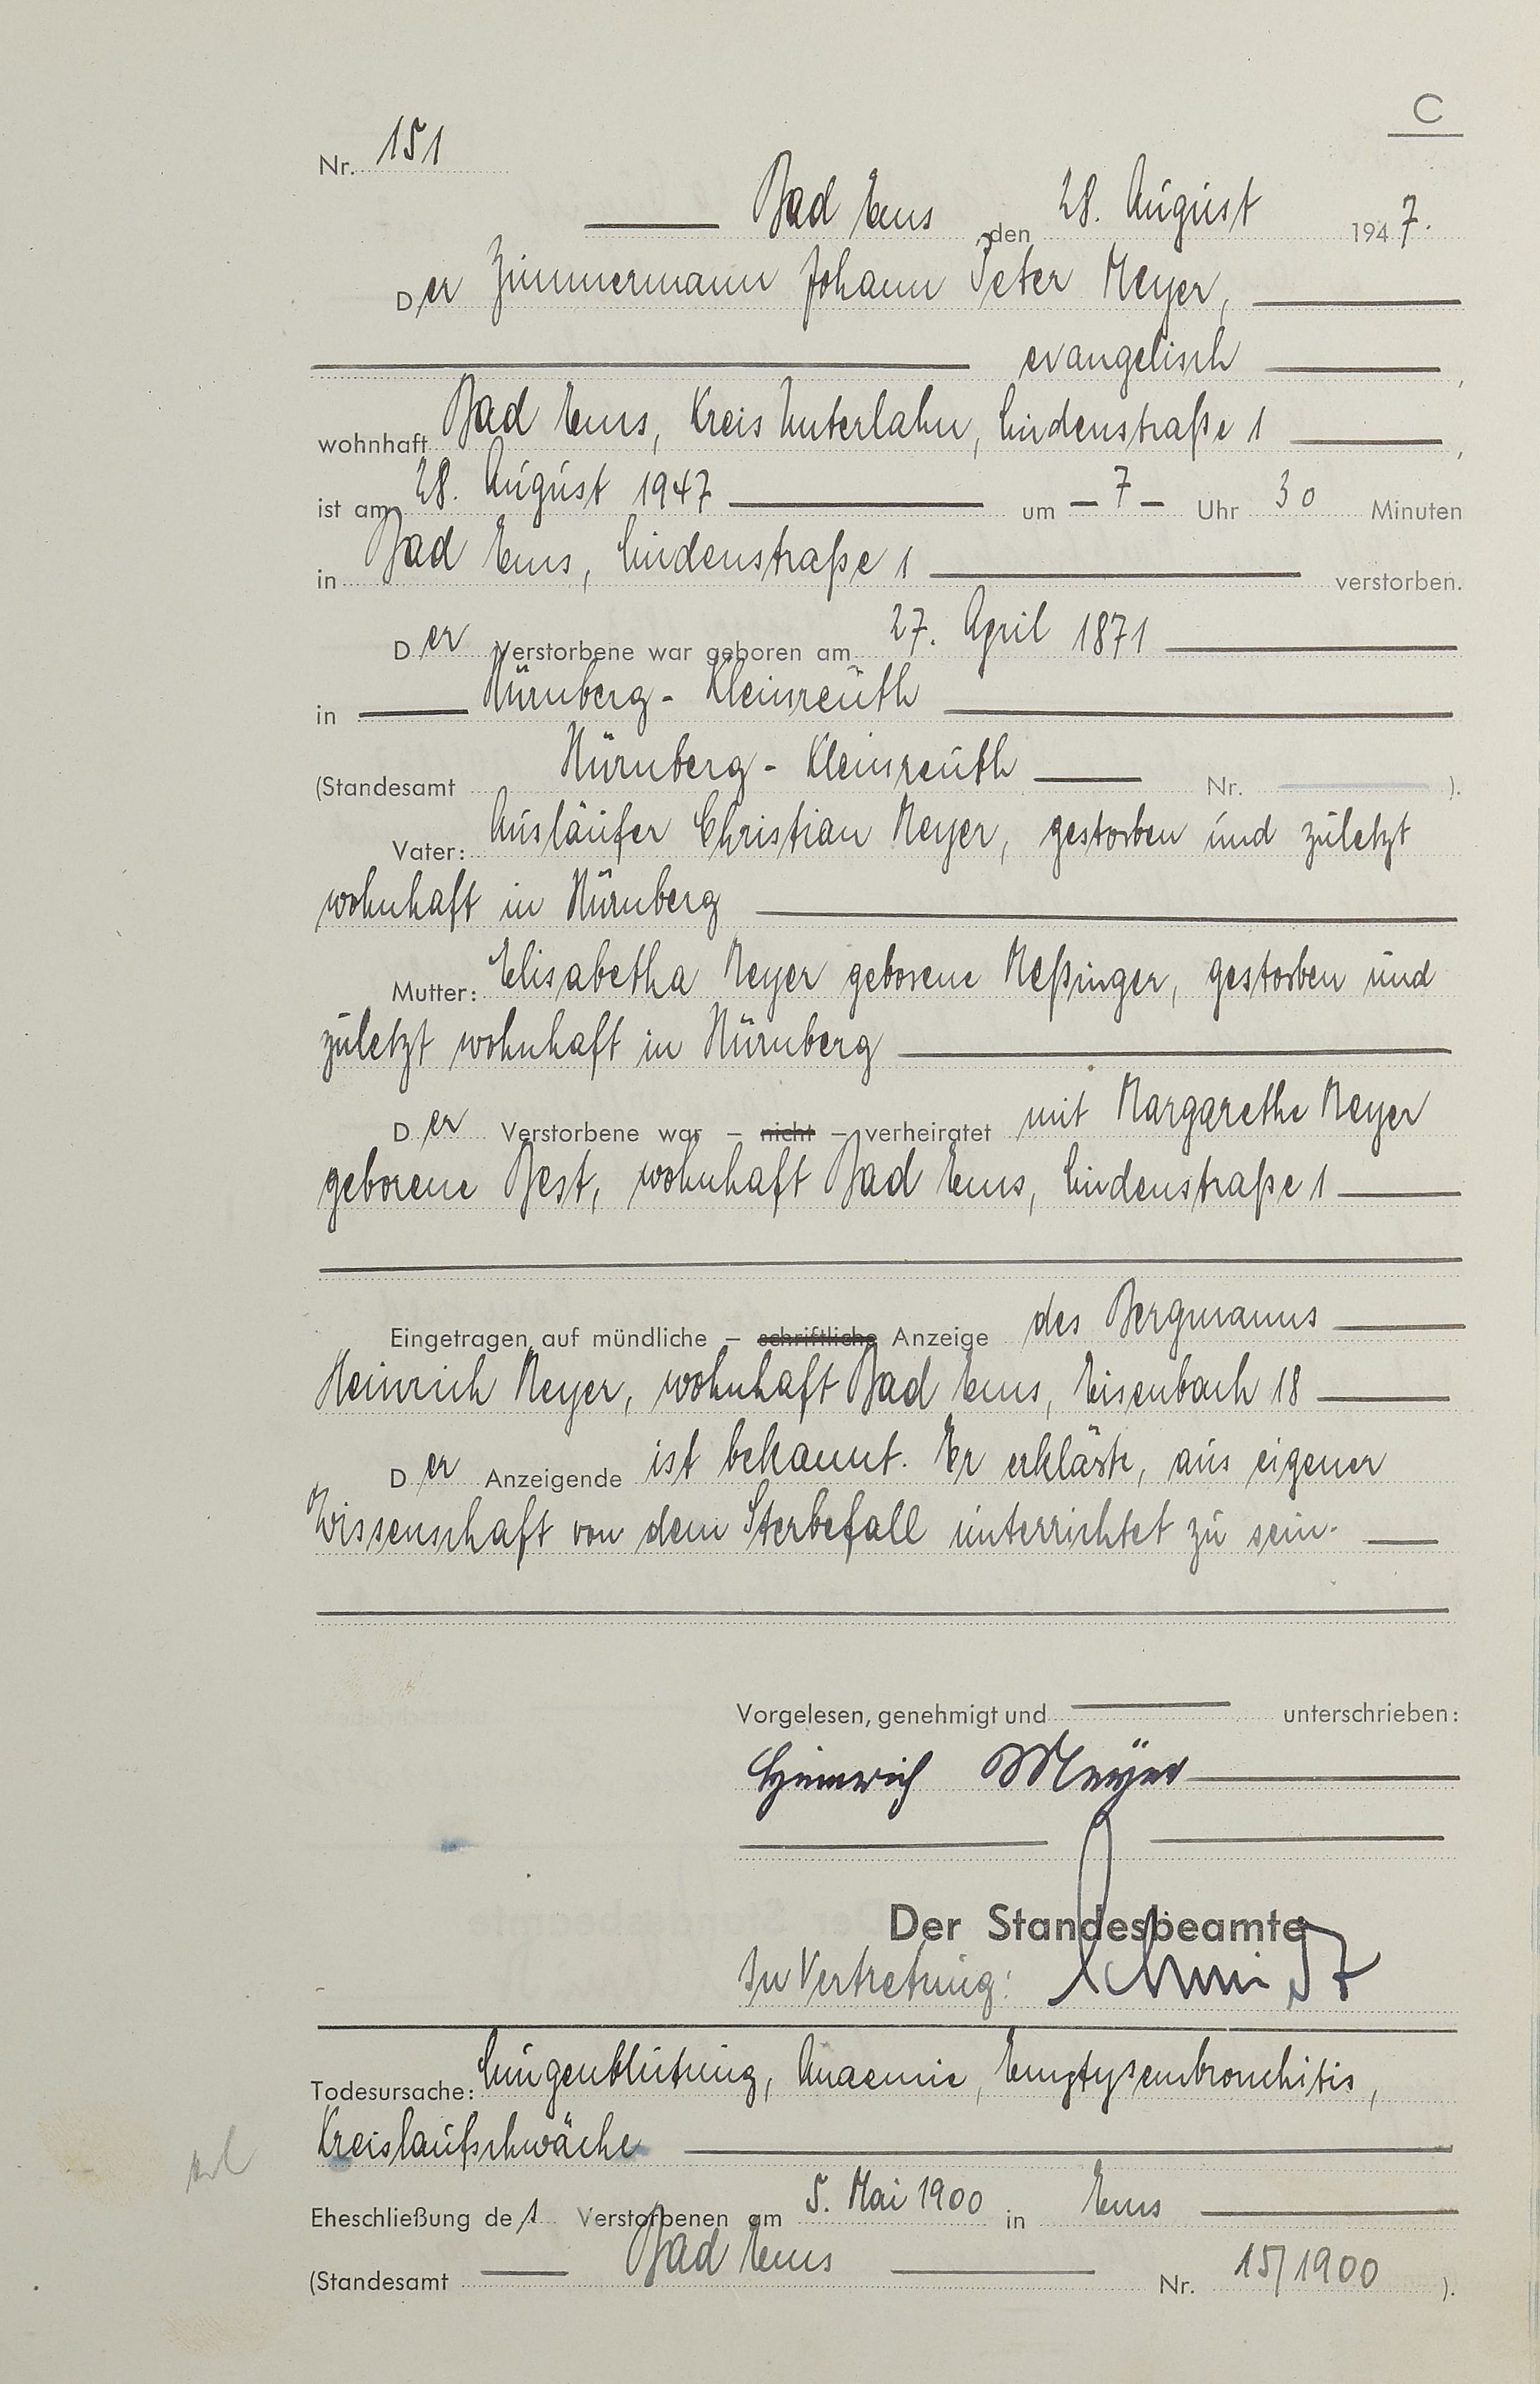 C
Nr. 151
Bad Ems, den 28. August 1947.
Der Zimmermann Johann Peter Meyer,
evangelisch,
wohnhaft Bad Ems, Kreis Unterlahn, Lindenstraße 1,
ist am 28. August 1947 um - 7 - Uhr 30 Minuten
in Bad Ems, Lindenstraße 1 verstorben.
Der Verstorbene war geboren am 27. April 1871
in Nürnberg-Kleinreuth
(Standesamt Nürnberg-Kleinreuth Nr. ).
Vater: Ausläufer Christian Meyer, gestorben und zuletzt
wohnhaft in Nürnberg
Mutter: Elisabetha Meyer geborene Meßinger, gestorben und
zuletzt wohnhaft in Nürnberg
Der Verstorbene war – nicht – verheiratet mit Margarethe Meyer
geborene Best, wohnhaft Bad Ems, Lindenstraße 1
Eingetragen auf mündliche – schriftliche Anzeige des Bergmanns
Heinrich Meyer, wohnhaft Bad Ems, Eisenbach 18
Der Anzeigende ist bekannt. Er erklärte, aus eigener
Wissenschaft von dem Sterbefall unterrichtet zu sein.
Vorgelesen, genehmigt und unterschrieben:
Heinrich Meyer
Der Standesbeamte
In Vertretung: Schmidt
Todesursache: Lungenblutung, Anaemie, Emphysembronchitis,
Kreislaufschwäche
Eheschließung des Verstorbenen am 5. Mai 1900 in Ems
(Standesamt Bad Ems Nr. 15/1900 ).